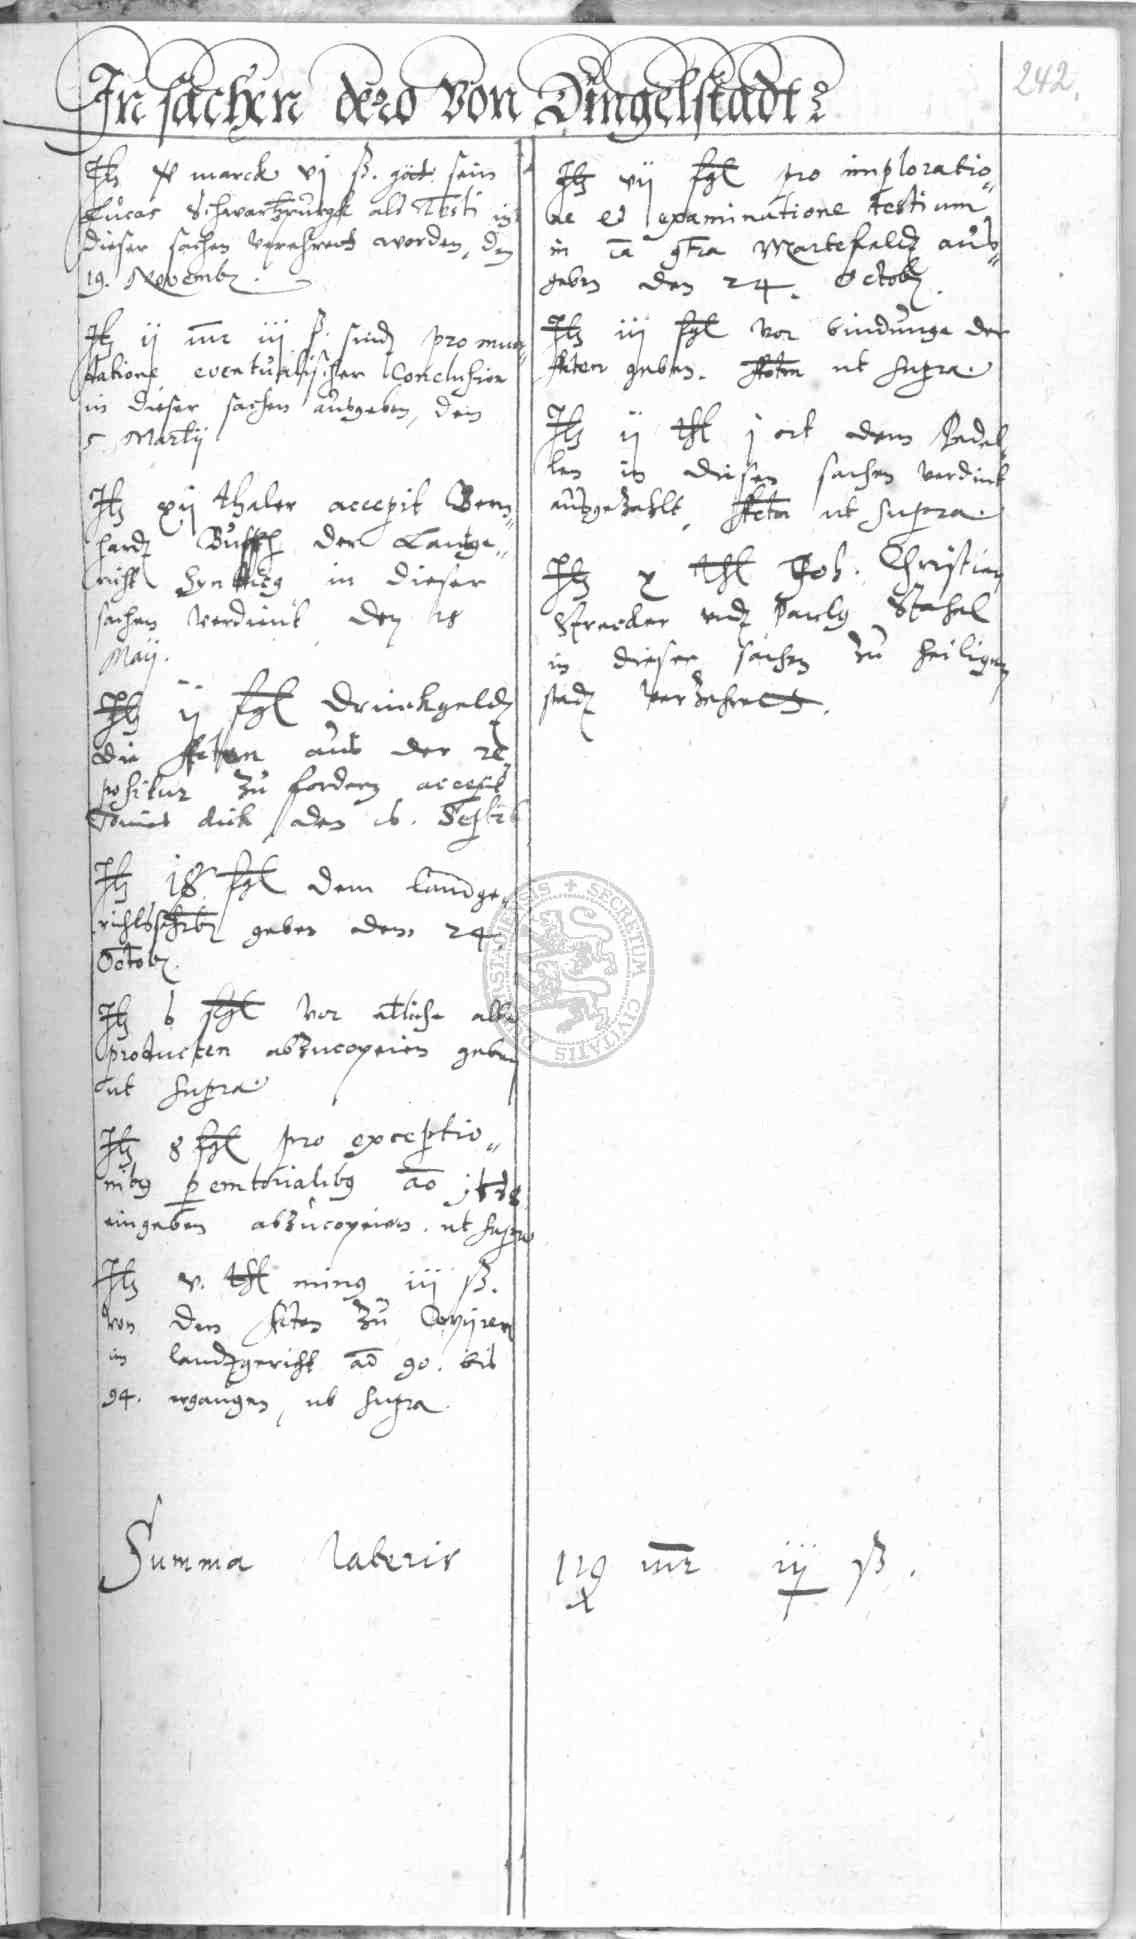 242.
In sachen dero von Dingelstadt
Itz marck vj ß. göt. sein
Lucas Schwartzburgk als Testi in
dieser sachen verehrett worden, den
19. Novemb
Itz ij mr iij ß. sindt pro
eventualischer Conclusion
in dieser sachen ausgeben, den
5. Martij
Itz xij thaler accepit Bern„
hardt der Landge„
richt in dieser
sachen verdient den 18
Maij.
Itz ij fgl Druckgeldt
die Acten aus der re
positur zu fordern accepit
dick den 16. Septeb
Itz 18 fgl dem landge„
richtsschrb geben den 24.
Octob.
Itz 6 fgl vor etliche alte
producten abzucopeien geben
ut supra.
Itz 8 fgl pro exceptio„
nibq pemtorialibq ao
eingeben abzucopeien. ut supra
Itz v. thl minq iij ß.
von den Acten zu Copijren
im landtgericht ao 90. bis
94. ergangen, ut supra.
Itz vij fgl pro imploratio„
ne et examinatione testium
in ca gtra Martefeldt aus„
geben den 24. Octob.
Itz iij fgl vor bindunge der
Acten geben. Actm ut supra.
Itz ij thl j ort dem Pedel„
len in diesen sachen verdint
ausgezahlt, Actm ut supra.
Itz x thl Joh. Christian
Strecker undt Paulq Stahel
in dieser sachen zu heiligen
stadt verzehrett.
Summa lateris 129 mr iij ß.
SECRETUM CIVITATIS